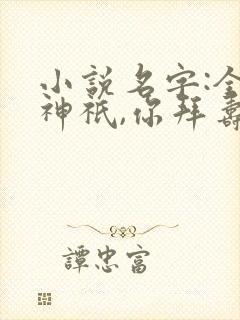 小說名字:全
神祇,你拜壽
譚忠富